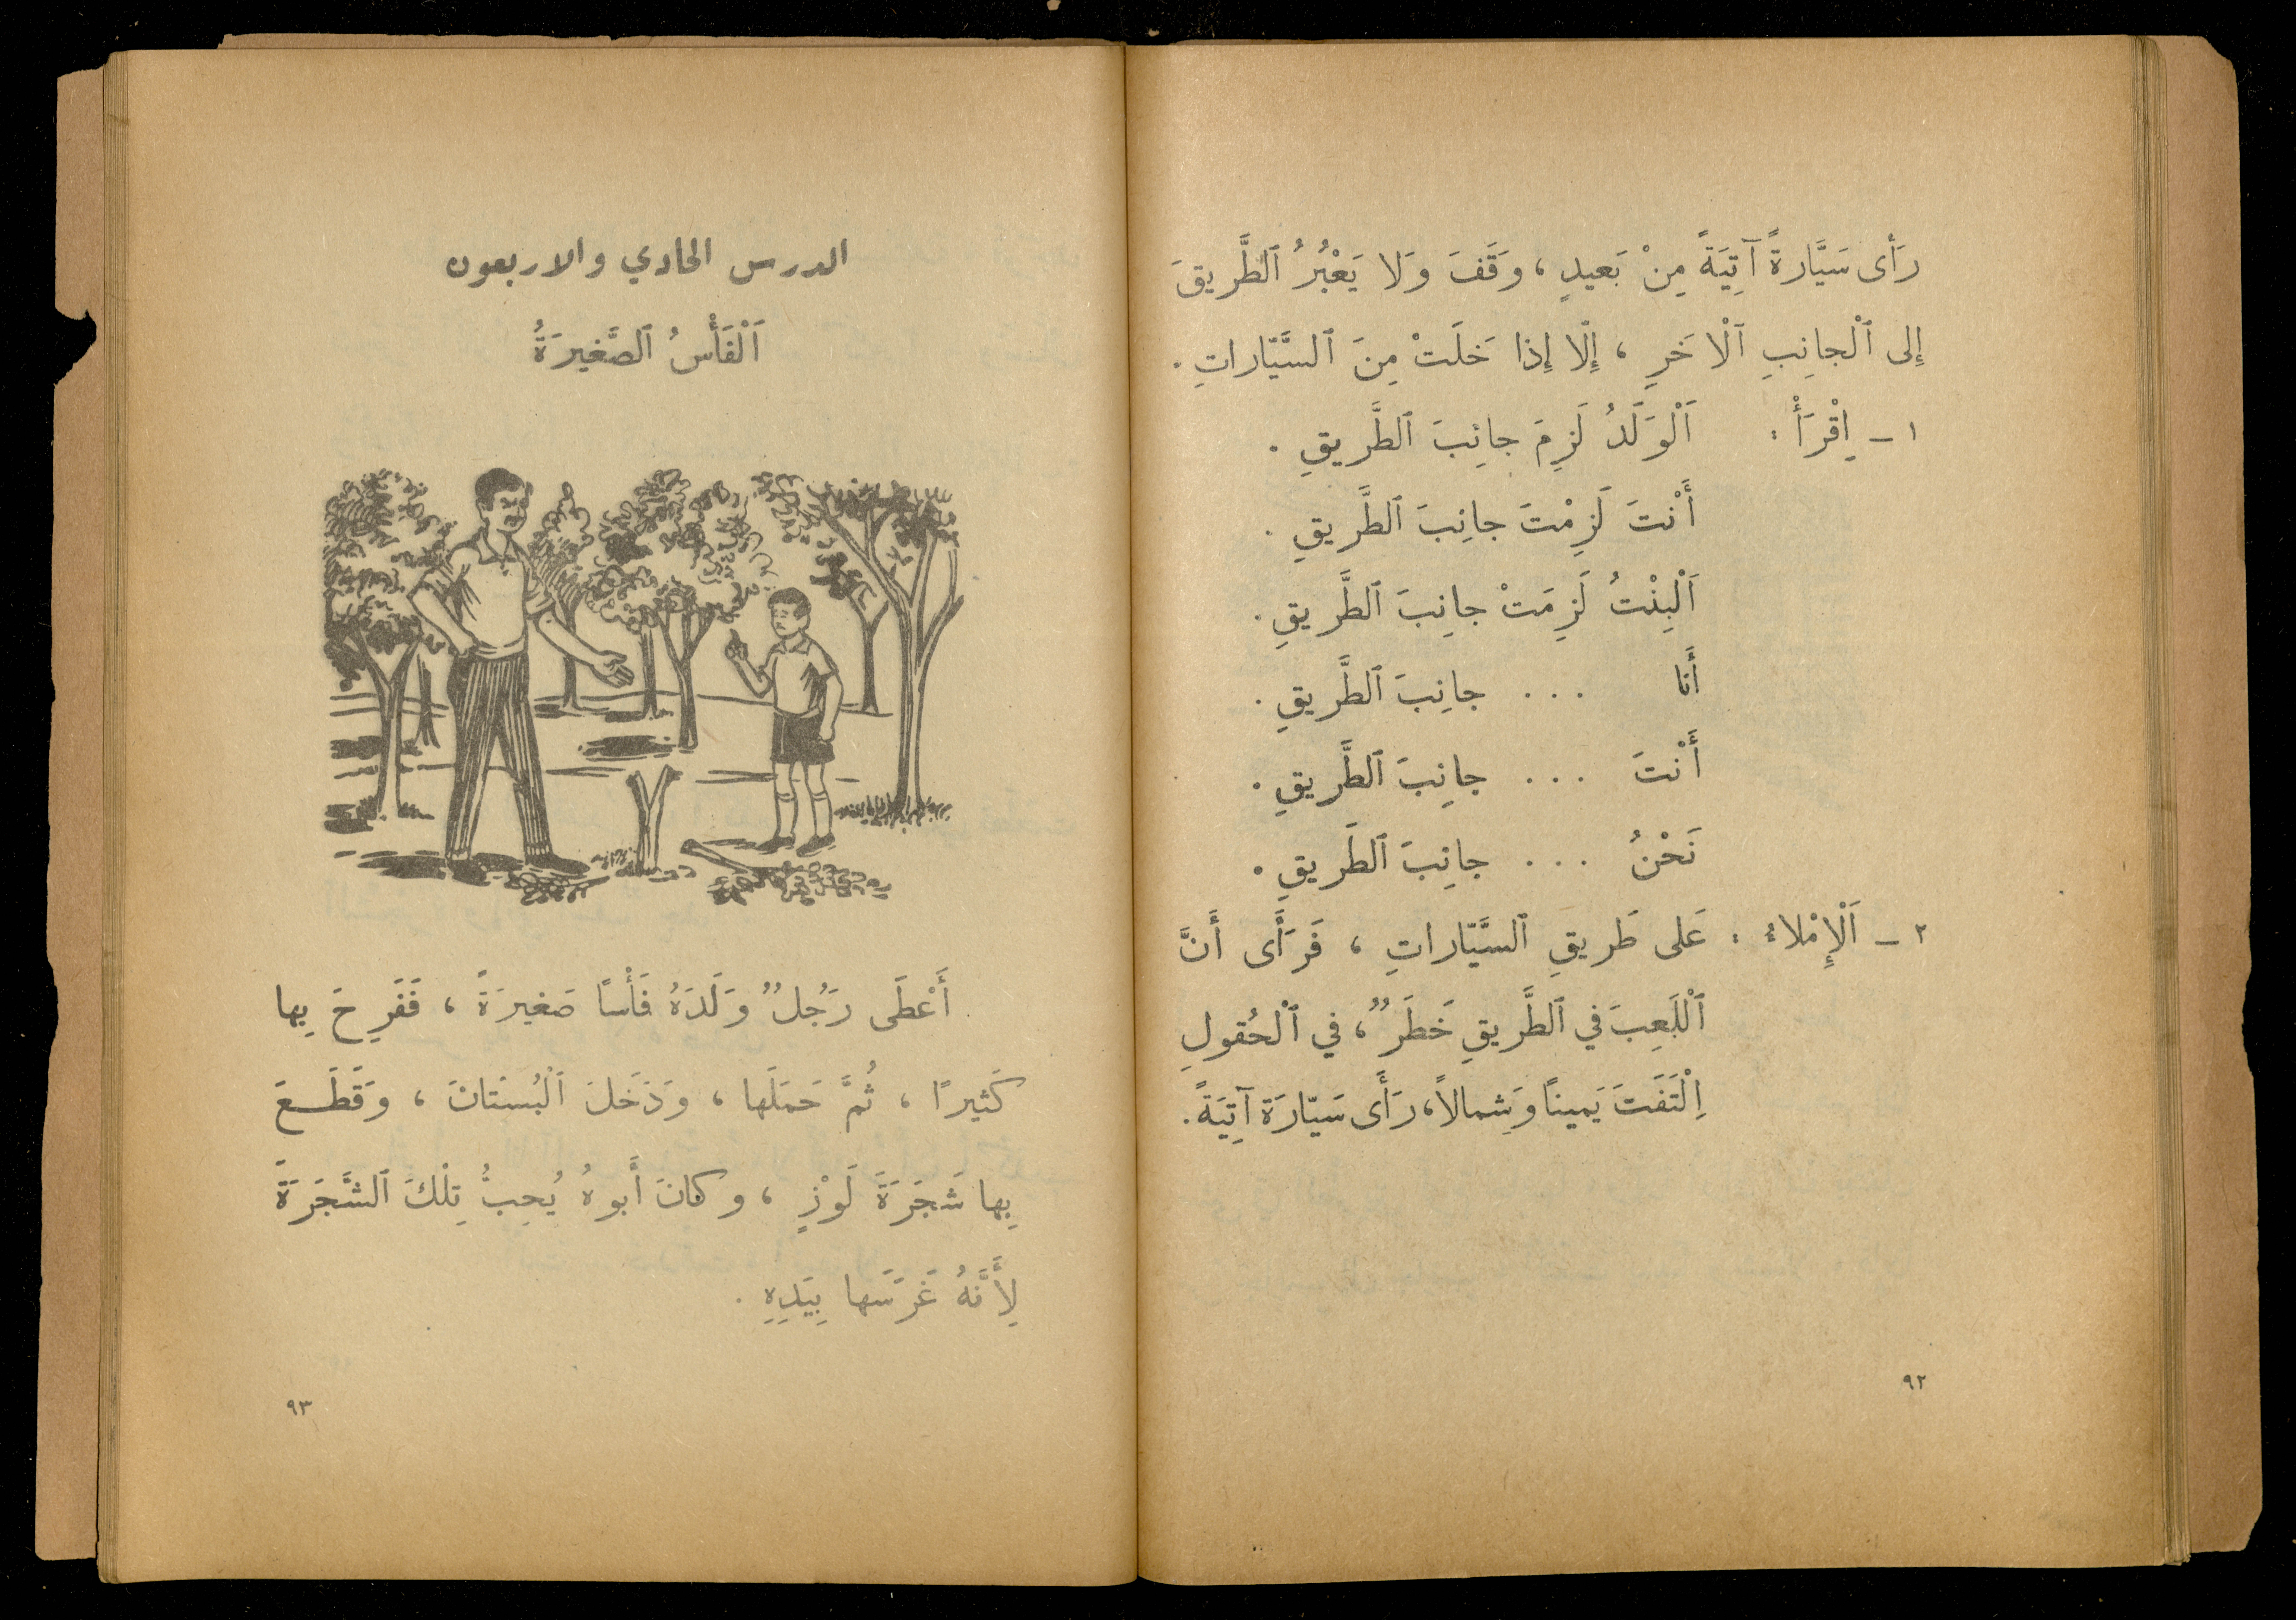 رَأى سَيَّارَةً آتِيَةً مِنْ بَعيدٍ ، وَقَفَ وَلا يَعْبُرُ ٱلطَّريقَ
إِلى ٱلْجانِبِ ٱلْآخَرِ ، إِلّا إِذا خَلَتْ مِنَ ٱلسَّيّاراتِ .
١ - إِقْرَأْ : اَلْوَلَدُ لَزِمَ جانِبَ ٱلطَّريقِ .
أَنْتَ لَزِمْتَ جانِبَ ٱلطَّريقِ .
اَلْبِنْتُ لَزِمَتْ جانِبَ ٱلطَّريقِ .
أَنا . . . جانِبَ ٱلطَّريقِ .
أَنْتَ . . . جانِبَ ٱلطَّريقِ .
نَحْنُ . . . جانِبَ ٱلطَّريقِ .
٢ - اَلْإِمْلاءُ : عَلى طَريقِ ٱلسَّيّاراتِ ، فَرَأَى أَنَّ
ٱلْلَعِبَ في ٱلطَّريقِ خَطَرٌ ، في ٱلْحُقولِ
اِلْتَفَتَ يَمينًا وَشِمالاً ، رَأَى سَيّارَة آتِيَةً .
٩٢
الدرس الحادي والاربعون
اَلْفَأْسُ ٱلصَّغيرَةُ
أَعْطَى رَجُلٌ وَلَدَهُ فَأْسًا صَغيرَةً ، فَفَرِحَ بِها
كَثيرًا ، ثُمَّ حَمَلَها ، وَدَخَلَ ٱلْبُسْتانَ ، وَقَطَعَ
بِها شَجَرَةَ لَوْزٍ ، وكانَ أَبوهُ يُحِبُّ تِلْكَ ٱلشَّجَرَةَ
لِأَنَّهُ غَرَسَها بِيَدِهِ .
٩٣